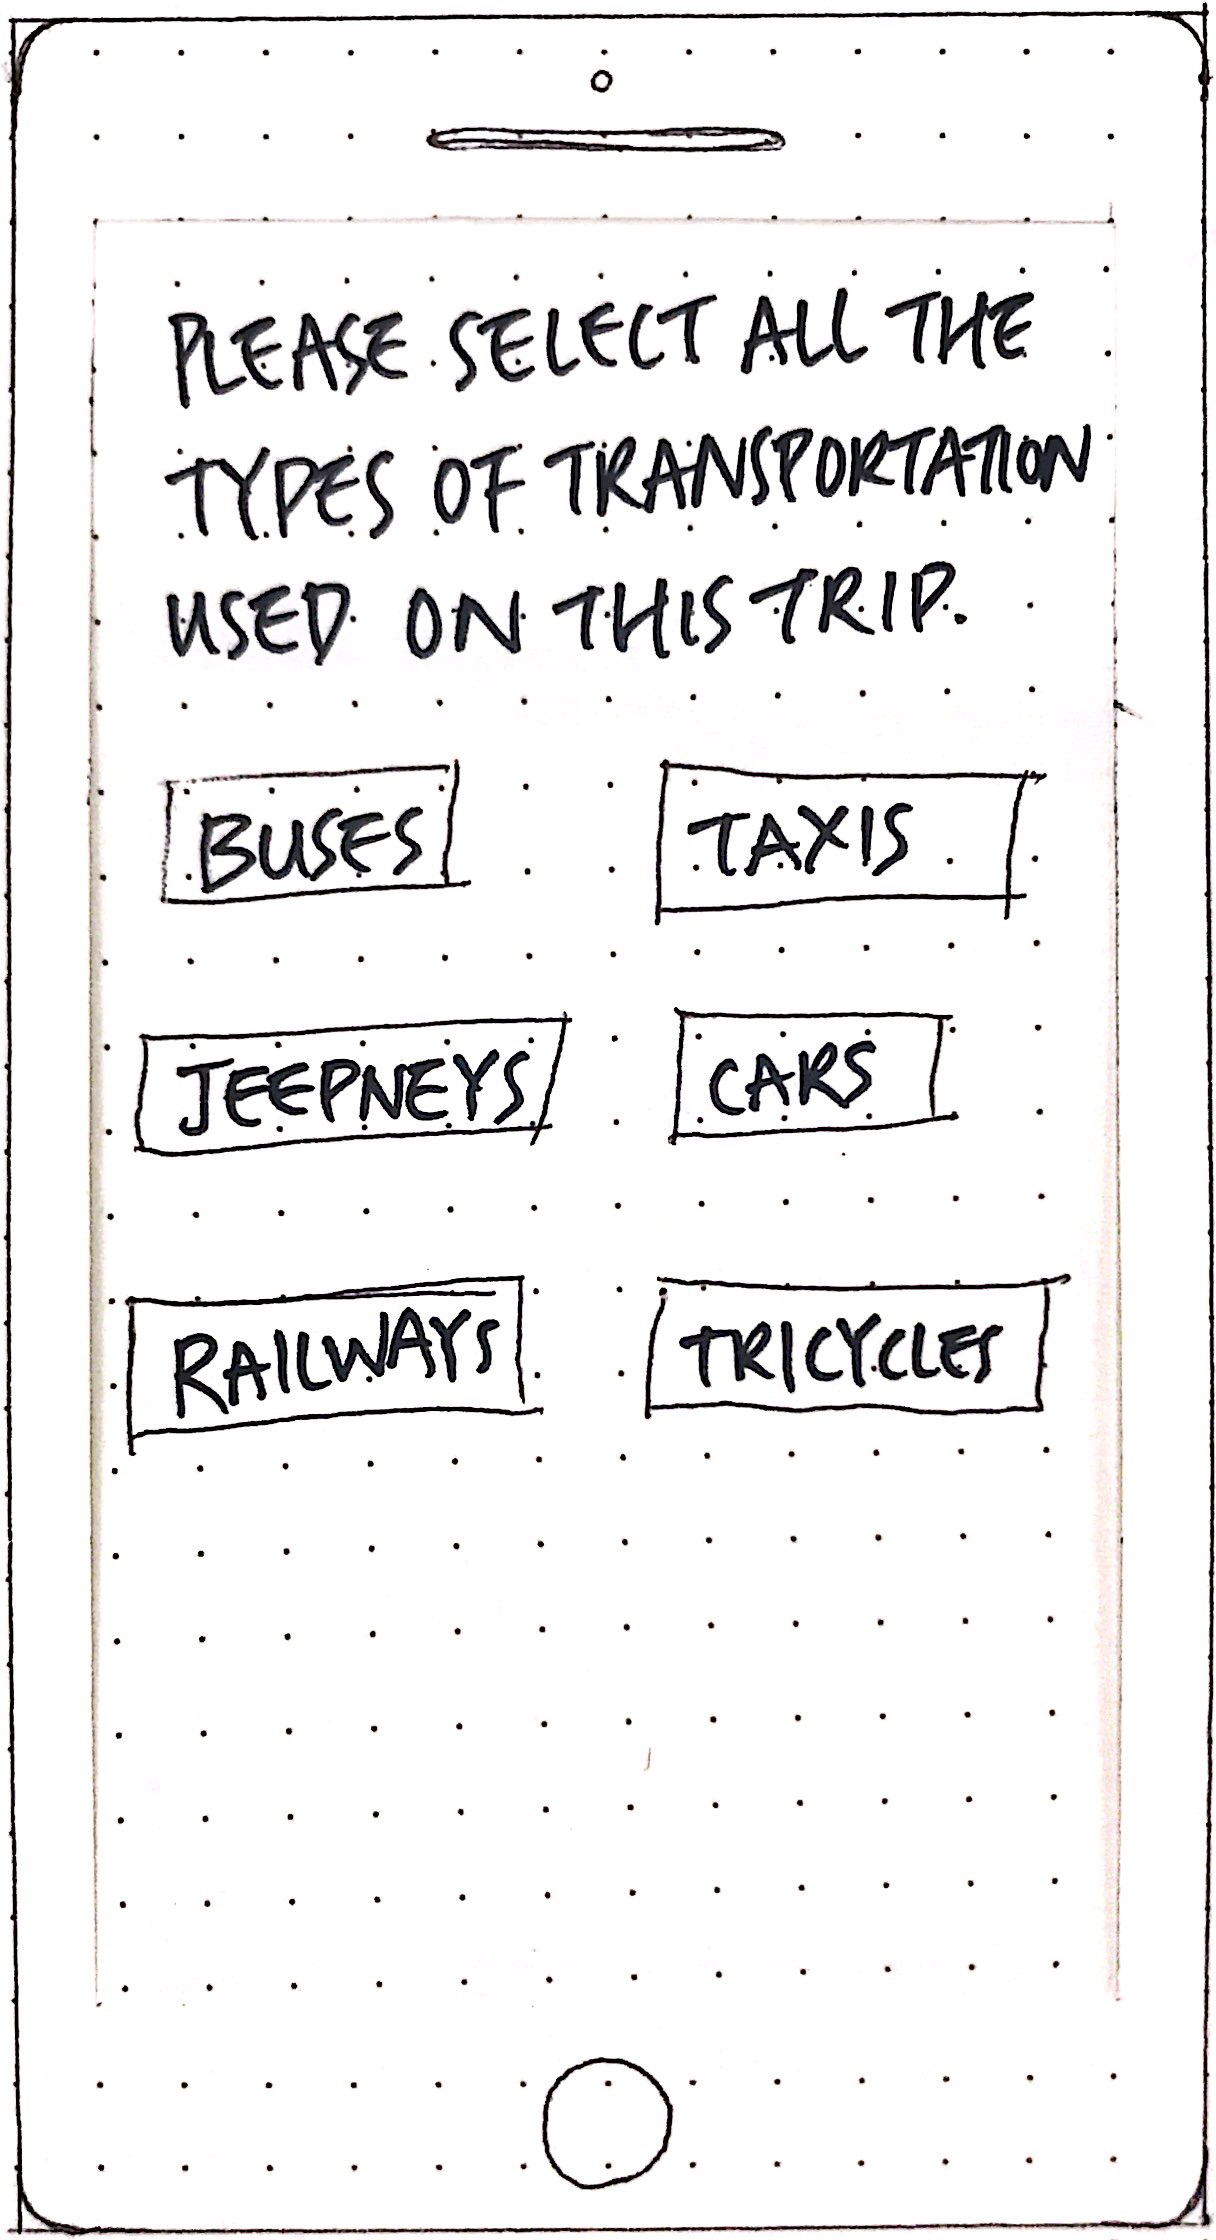 PLEASE SELECT ALL THE
TYPES OF TRANSPORTATION
USED ON THIS TRIP.
BUSES
TAXIS
JEEPNEYS
CARS
RAILWAYS
TRICYCLES